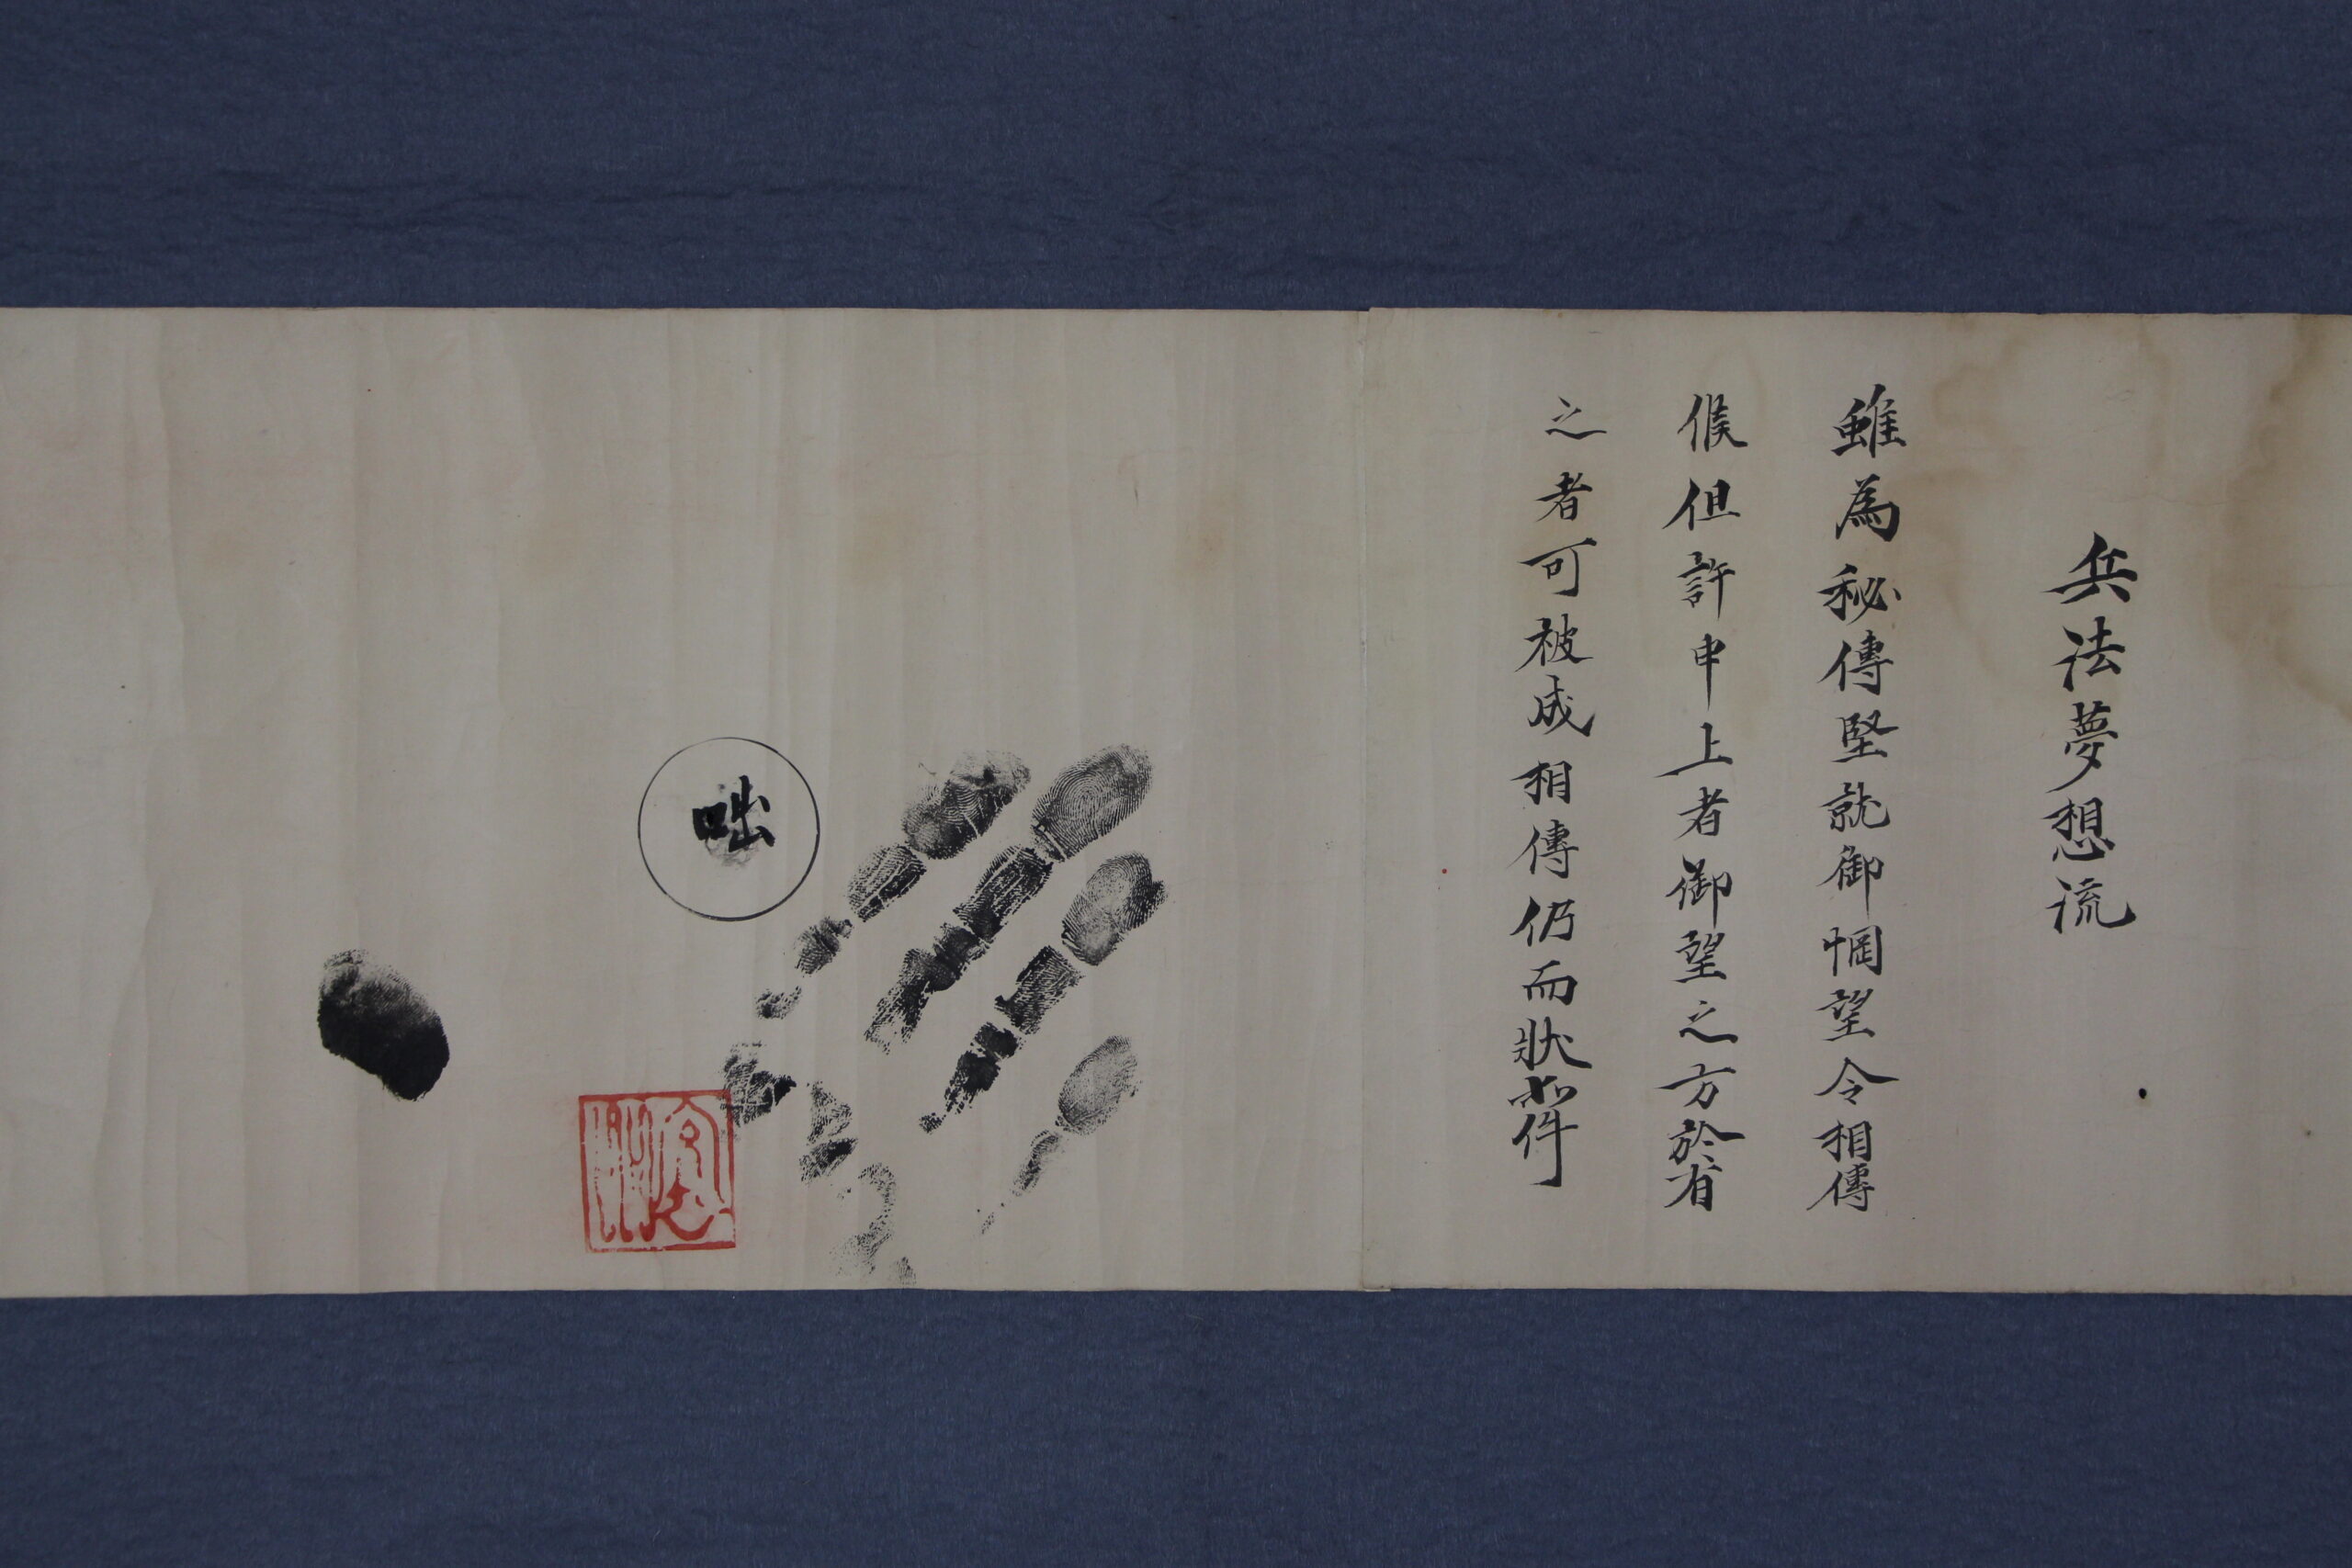 兵法夢想流
雖為秘傳堅就御惘望令相傳
候但許申上者御望之方於有
之者可被成相傳仍而狀如件
咄